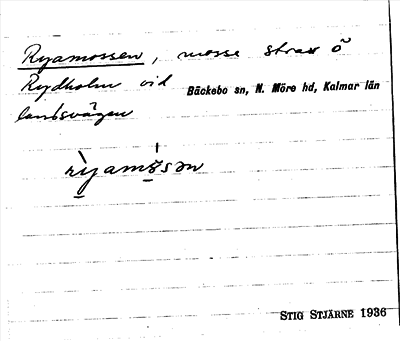 Ryamossen, mosse strax ö
Rydholm vid Bäckebo sn, N. Möre hd, Kalmar län
landsvägen
STIG STJÄRNE 1936